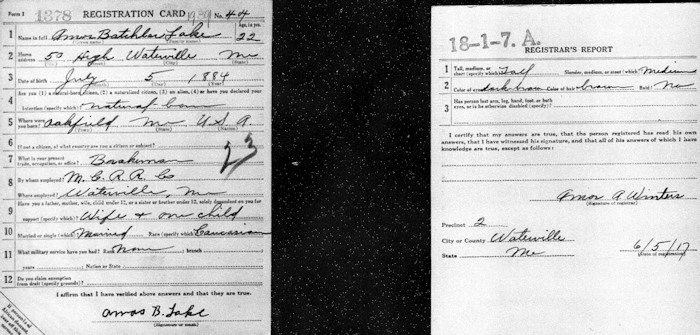 Form 1 1378 REGISTRATION CARD No. 44
1 Name in full Amos Batchlor Lake Age, in yrs. 22
2 Home address 50 High Waterville Me
3 Date of birth July 5 1884
4 Are you (1) a natural-born citizen, (2) a naturalized citizen, (3) an alien, (4) or have you declared your
intention (specify which)? Natural born
5 Where were you born? Oakfield Me U.S.A.
(Town) (State) (Nation)
6 If not a citizen, of what country are you a citizen or subject?
7 What is your present trade, occupation, or office? Brakeman
23
8 By whom employed? M.C.R.R. Co
Where employed? Waterville, Me
9 Have you a father, mother, wife, child under 12, or a sister or brother under 12, solely dependent on you for
support (specify which)? Wife & one child
10 Married or single (which)? Married Race (specify which)? Caucasian
11 What military service have you had? Rank None ; branch
years ; Nation or State
12 Do you claim exemption from draft (specify grounds)?
I affirm that I have verified above answers and that they are true.
Amos B. Lake
(Signature or mark)
18-1-7. A.
REGISTRAR'S REPORT
1 Tall, medium, or short (specify which)? Tall Slender, medium, or stout (which)? Medium
2 Color of eyes? dark brown Color of hair? brown Bald? No
3 Has person lost arm, leg, hand, foot, or both
eyes, or is he otherwise disabled (specify)?
I certify that my answers are true, that the person registered has read his own
answers, that I have witnessed his signature, and that all of his answers of which I have
knowledge are true, except as follows:
Amos A Winters
(Signature of registrar)
Precinct 2
City or County Waterville
State Me
6/5/17
(Date of registration)